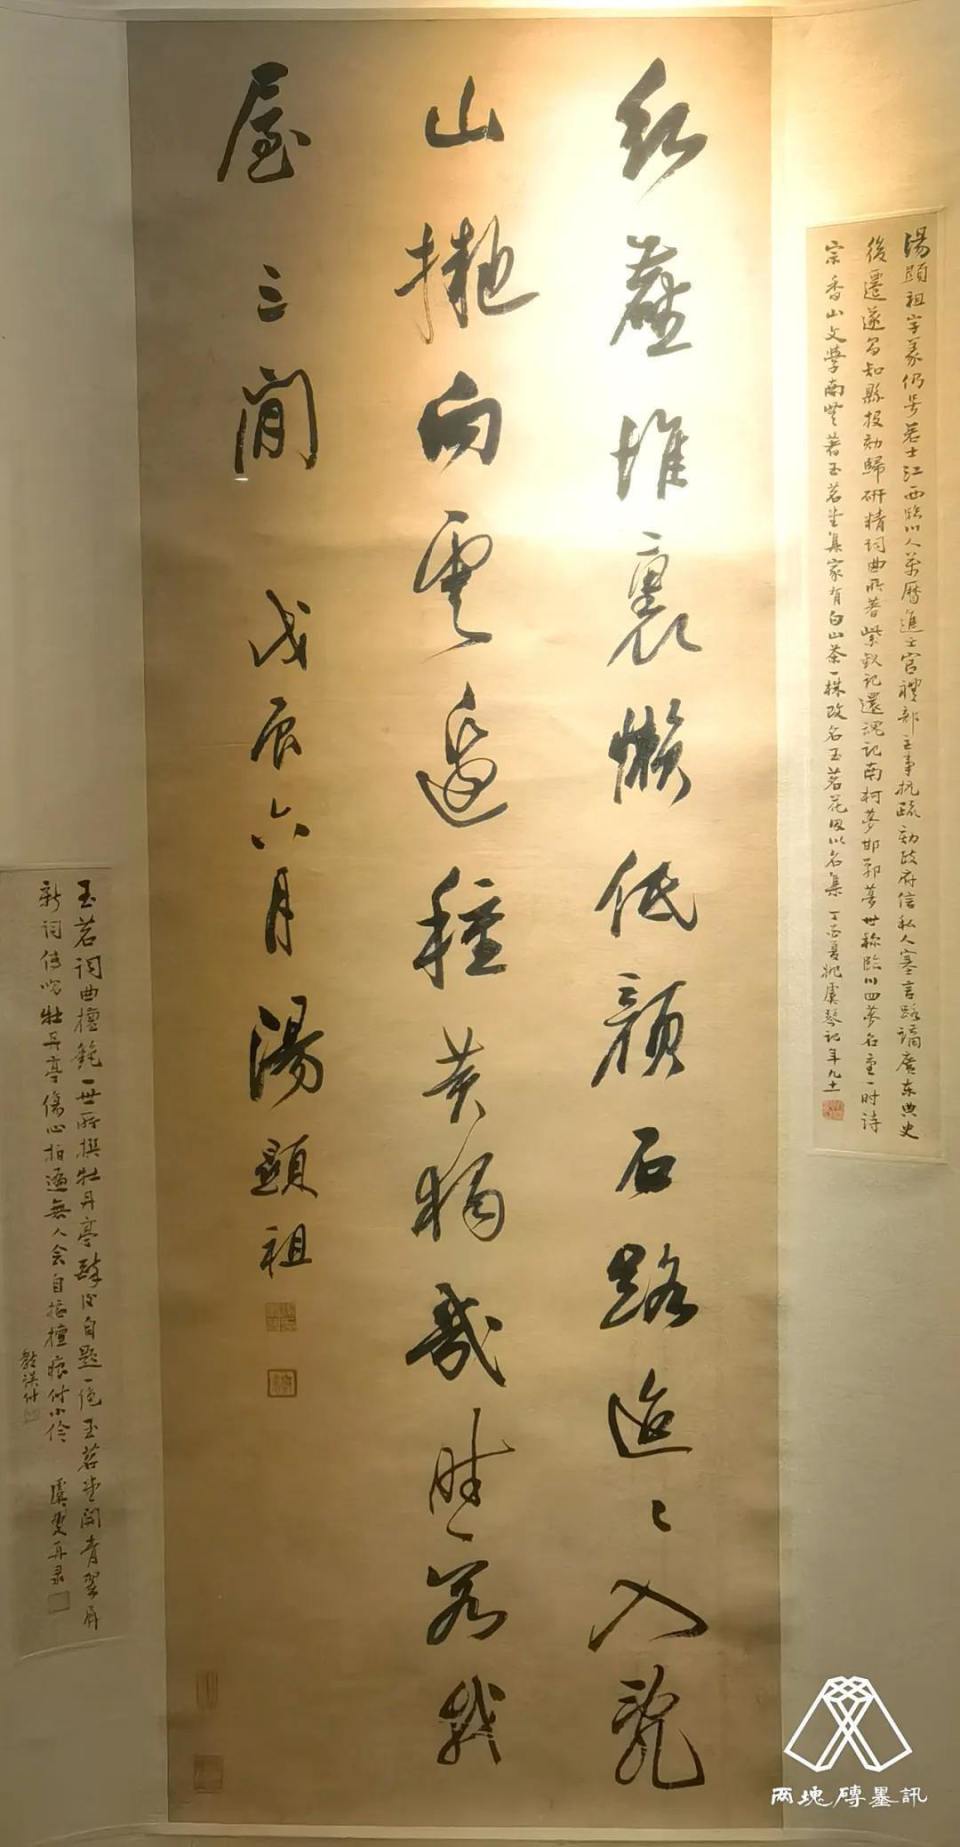 湯顯祖字義仍號若士江西臨川人萬曆進士官禮部主事抗疏劾政府信私人塞言路謫廣东典史
後遷遂昌知縣投劾歸研精詞曲所著紫釵記還魂記南柯夢邯鄲夢世称臨川四夢名重一时诗
宗香山文學南豐著玉茗堂集家有白山茶一株改名玉茗花因以名集 丁丑夏姚虞琴記年九十一
红塵堆裏懶低顏石路迢迢入亂
山拋向雲邊種黃獨幾時容我
屋三間 戊辰六月湯顯祖
玉茗词曲擅絕一世所撰牡丹亭脱後自题一绝玉茗堂開青翠屏
新词傳唱牡丹亭傷心拍遍無人会自掐檀痕付小伶 虞琴再录
两塊磚墨訊